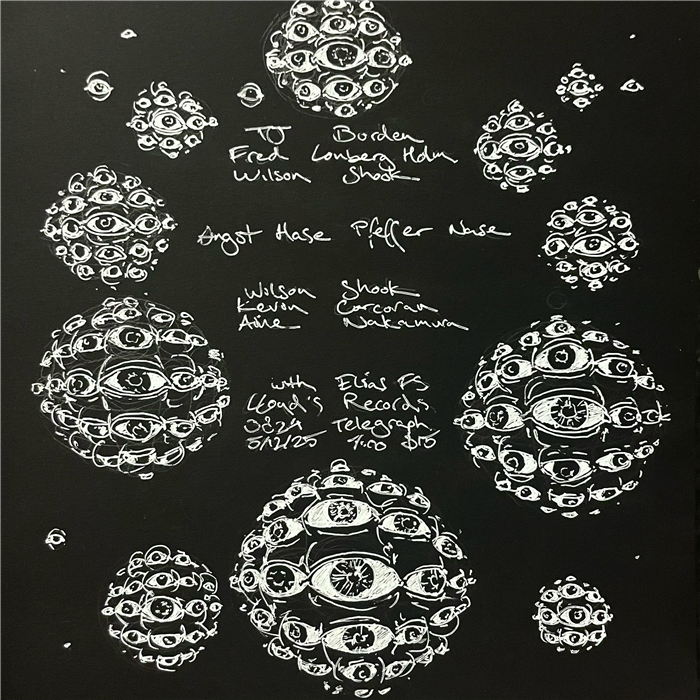 TJ Borden
Fred Lonberg Holm
Wilson Shook
Angst Hase Pfeffer Nase
Wilson Shook
Kevin Corcoran
Aine Nakamura
with Elias FS
Lloyd's Records
Telegraph
5/12/25 $10